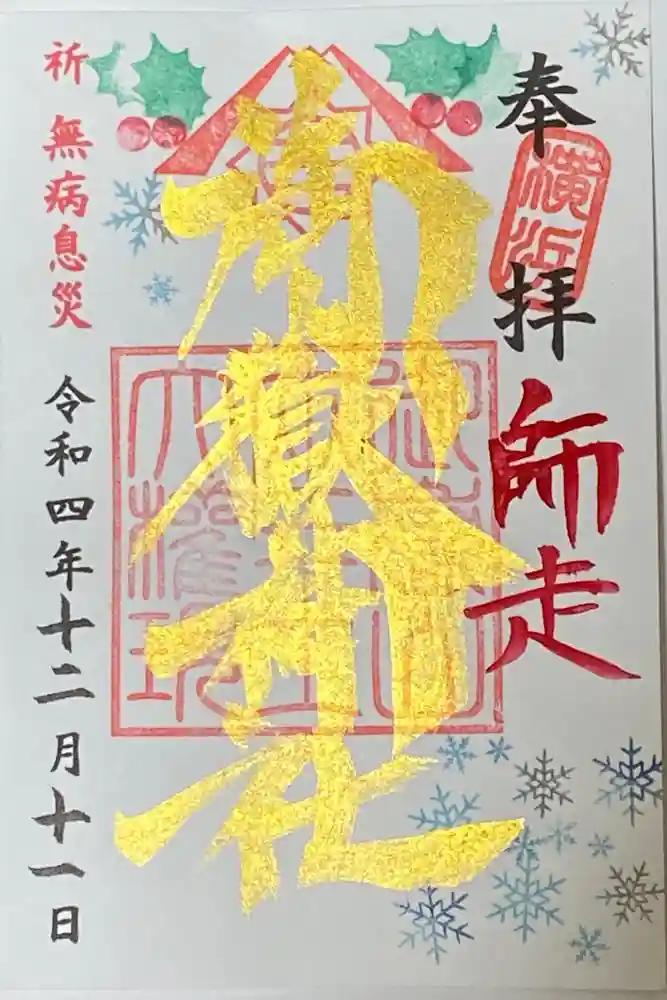 奉拝
横浜
師走
御嶽神社
大権現
祈 無病息災
令和四年十二月十一日